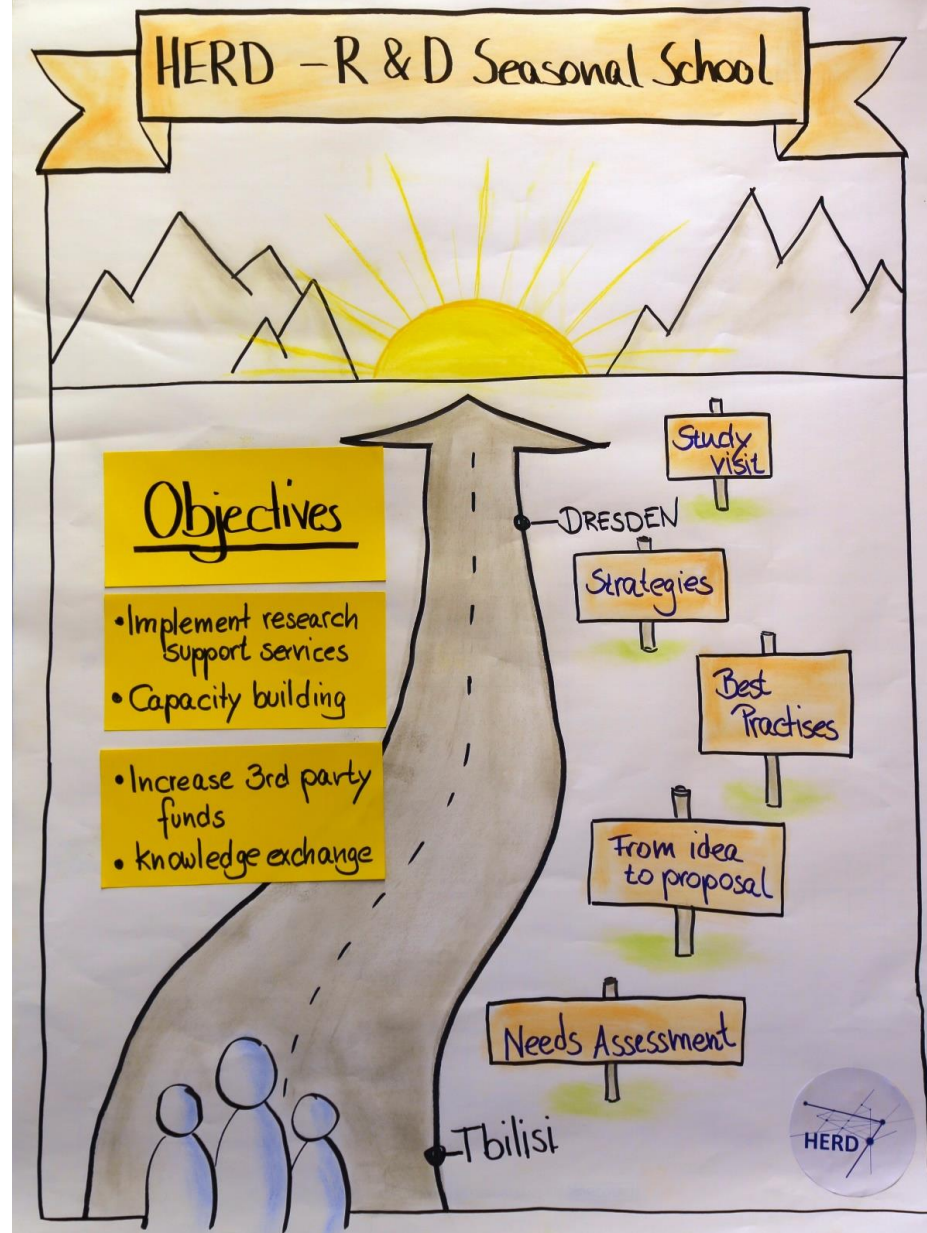 HERD – R & D Seasonal School
Objectives
• Implement research
support services
• Capacity building
• Increase 3rd party
funds
• knowledge exchange
Study
visit
DRESDEN
Strategies
Best
Practises
From idea
to proposal
Needs Assessment
Tbilisi
HERD